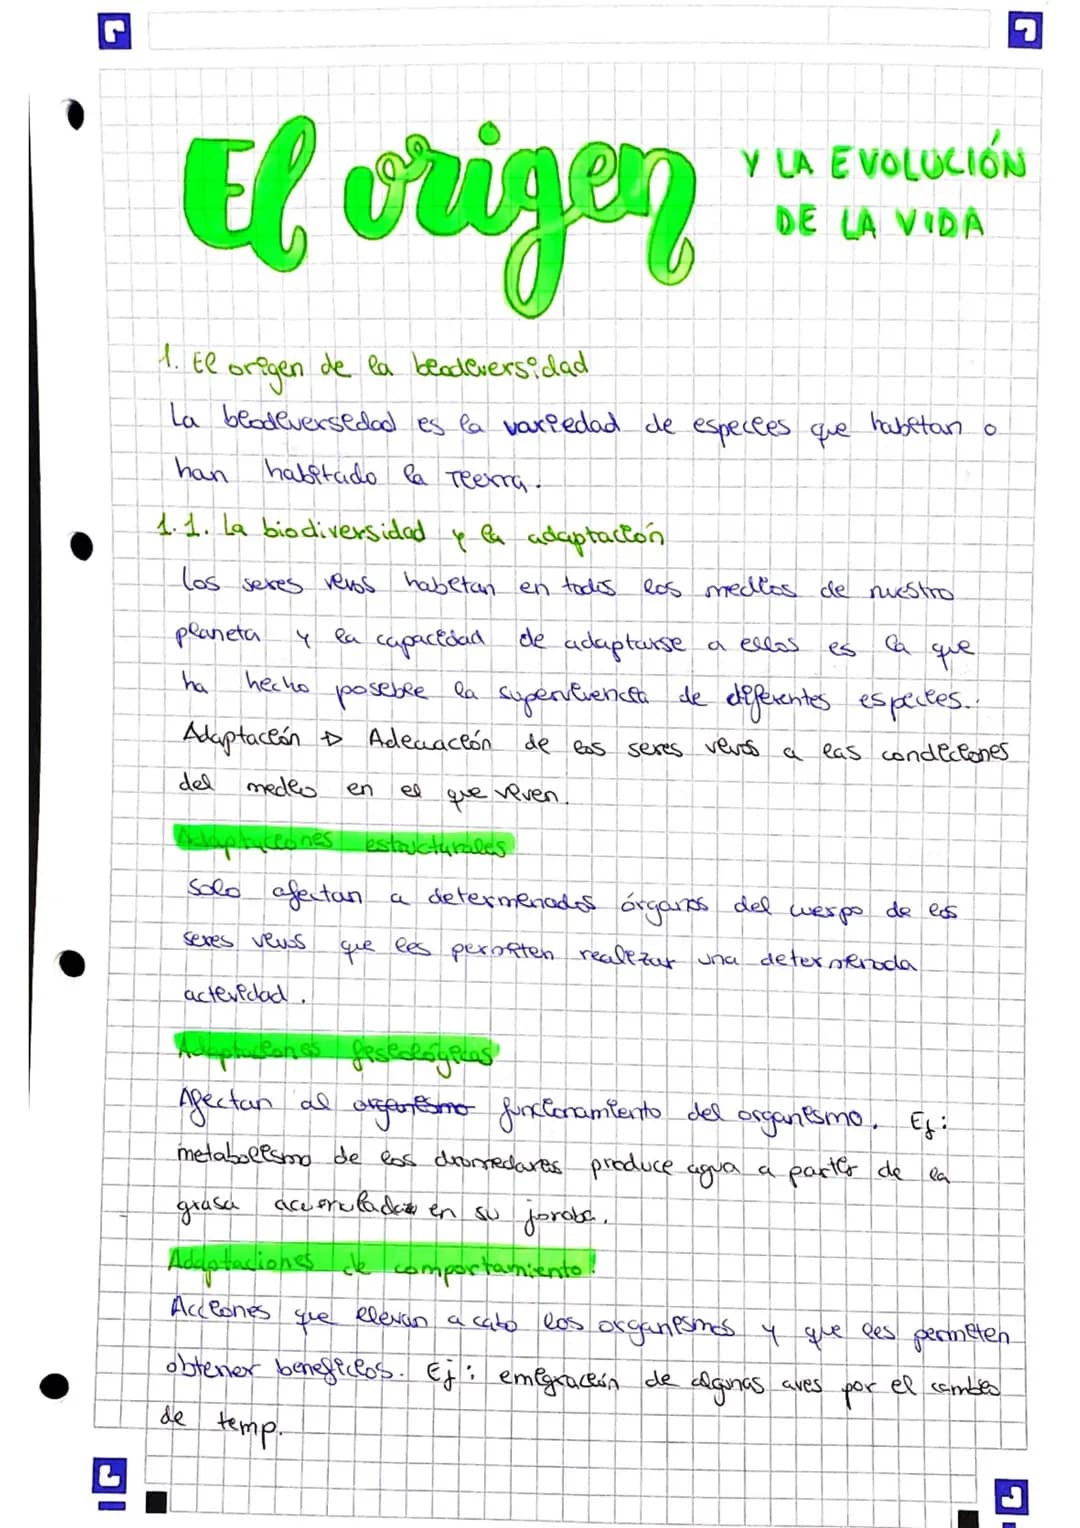 El origen Y LA EVOLUCIÓN
DE LA VIDA
1. El origen de la biodiversidad
La biodiversidad es la variedad de especies que habitan o
han habitado la Tierra.
1.1. La biodiversidad y la adaptación
Los seres vivos habitan en todos los medios de nuestro
planeta y la capacidad de adaptarse a ellos es la que
ha hecho posible la supervivencia de diferentes especies.
Adaptación → Adecuación de los seres vivos a las condiciones
del medio en el que viven.
Adaptaciones estructurales
Solo afectan a determinados órganos del cuerpo de los
seres vivos que les permiten realizar una determinada
actividad.
Adaptaciones fisiológicas
Afectan al organismo funcionamiento del organismo. Ej:
metabolismo de los dromedares produce agua a partir de la
grasa acumulada en su joroba.
Adaptaciones de comportamiento:
Acciones que llevan a cabo los organismos y que les permiten
obtener beneficios. Ej: emigración de algunas aves por el cambio
de temp.